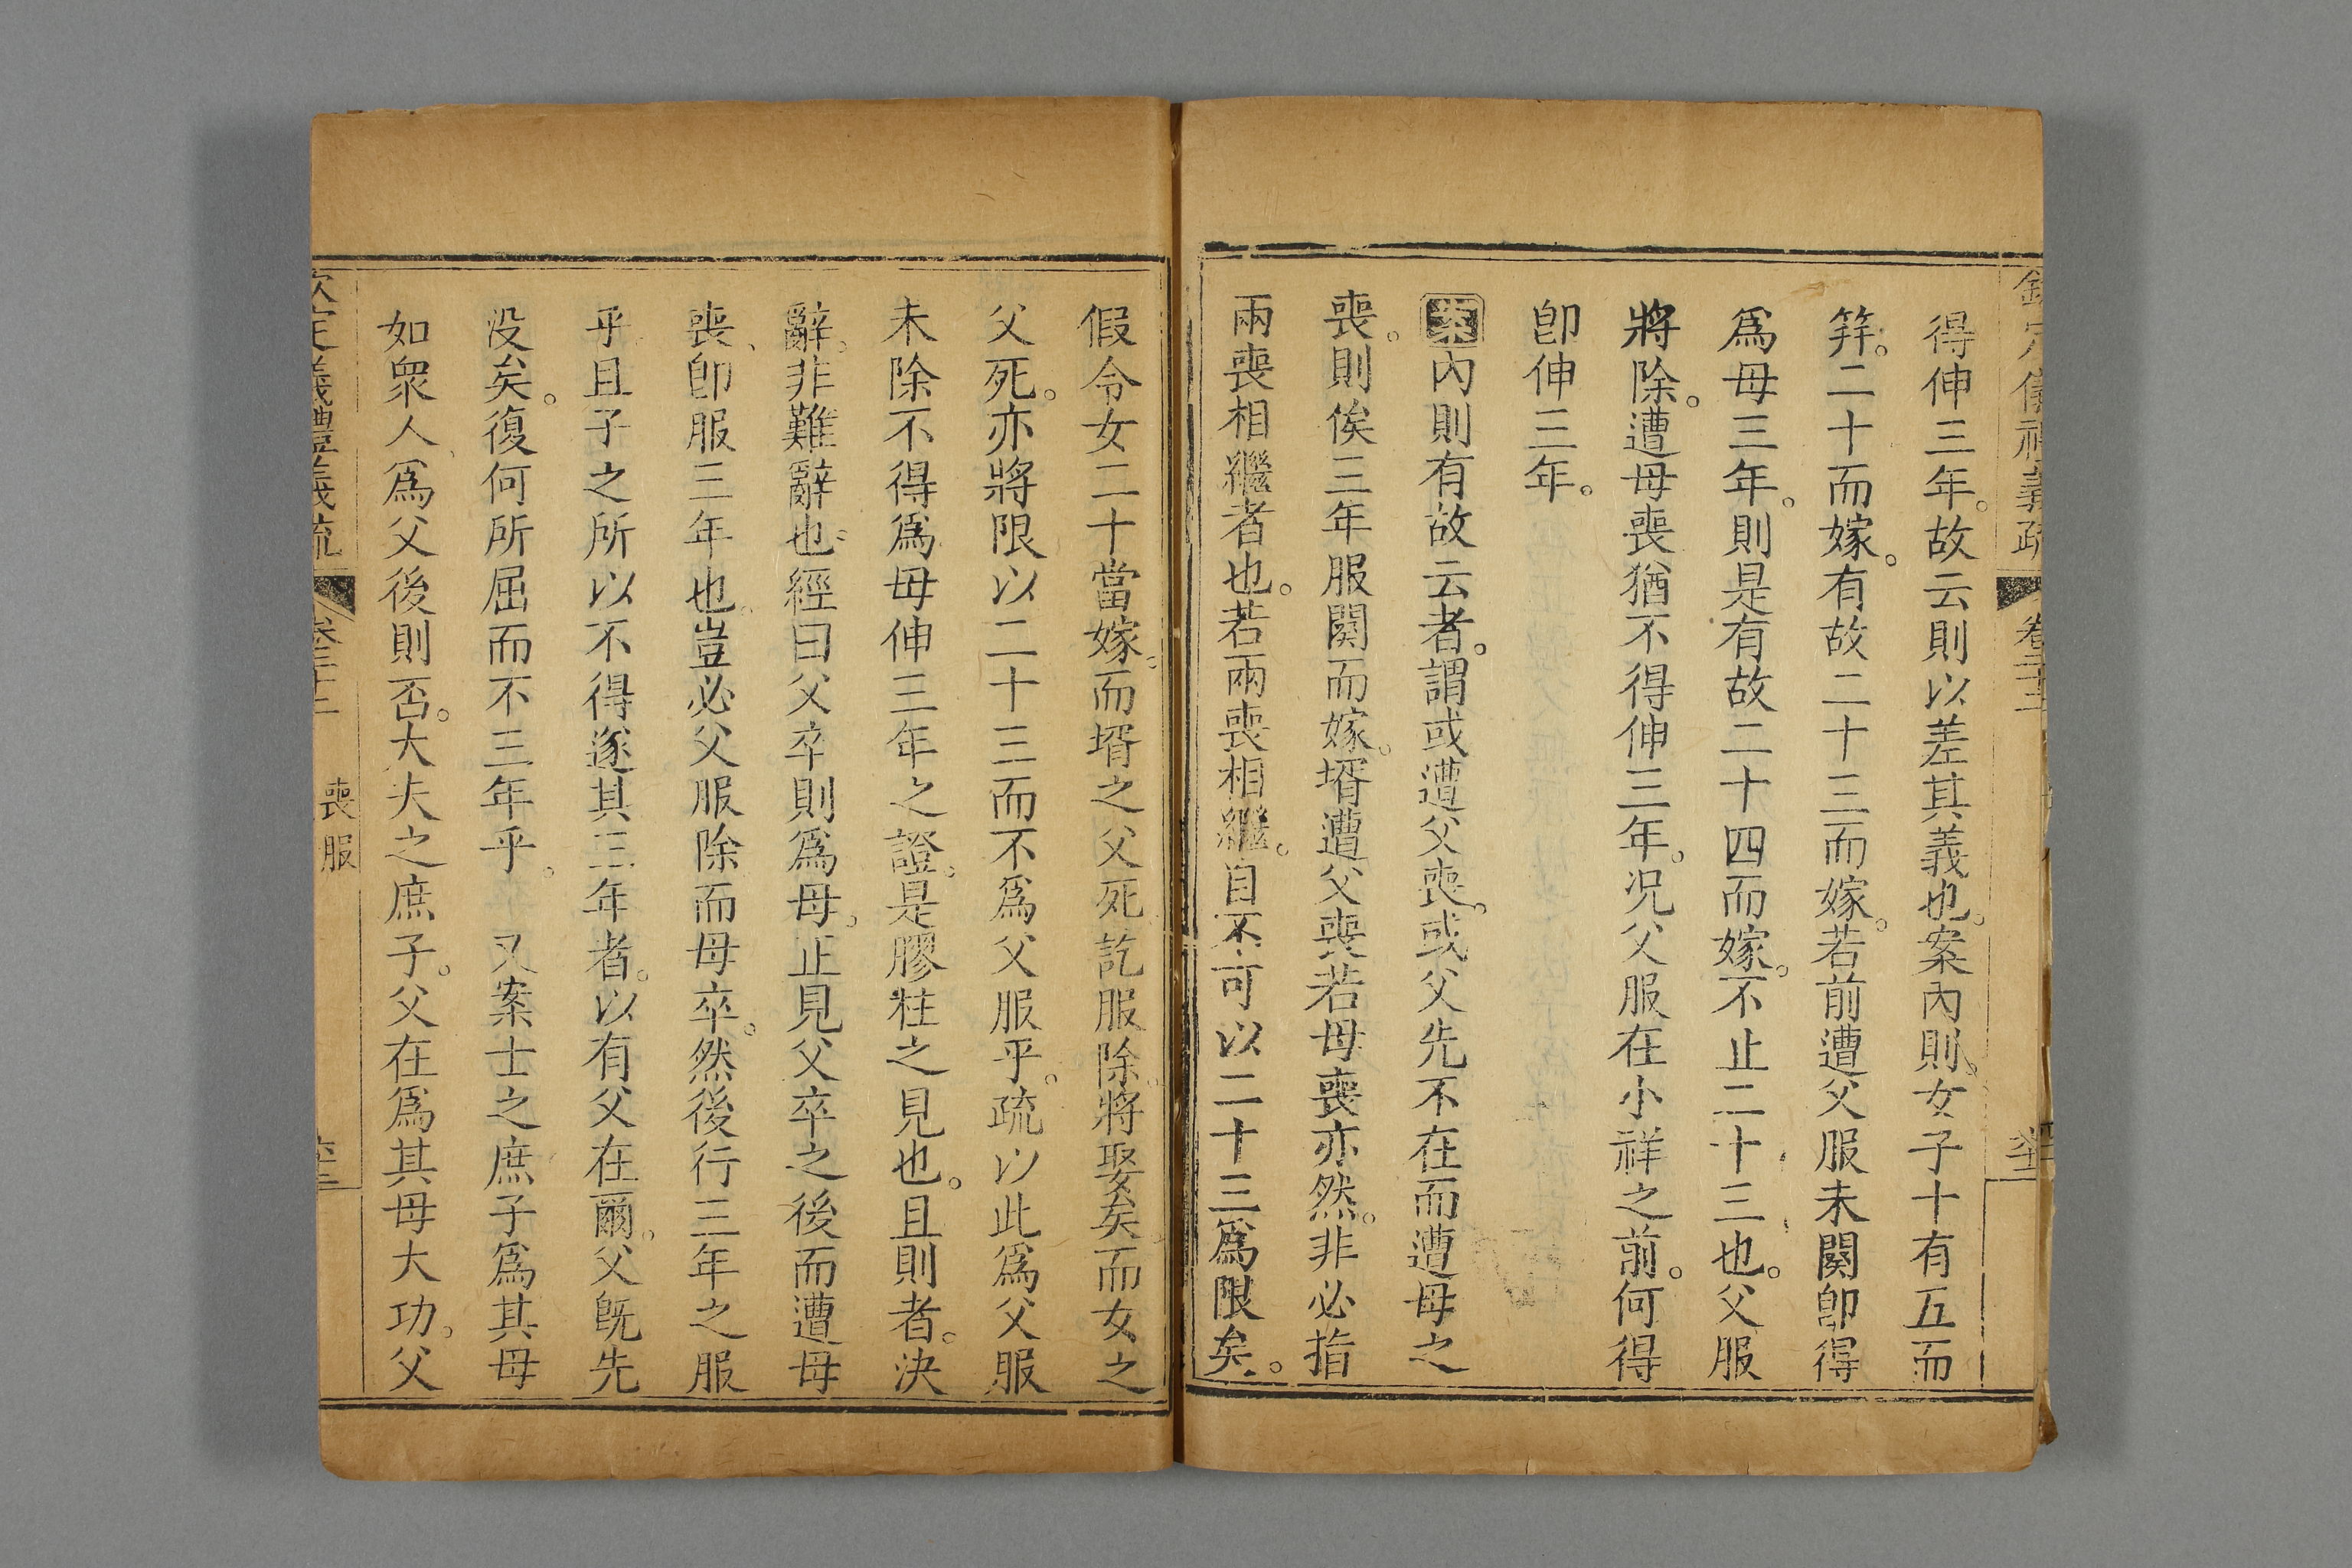 欽定儀禮義疏 卷二十二
得伸三年。故云則以差其義也。案內則、女子十有五而
笄。二十而嫁。有故二十三而嫁。若前遭父服未闋卽得
爲母三年。則是有故二十四而嫁。不止二十三也。父服
將除。遭母喪猶不得伸三年。況父服在小祥之前。何得
卽伸三年。
案內則有故云者。謂或遭父喪。或父先不在而遭母之
喪。則俟三年服闋而嫁。壻遭父喪若母喪亦然。非必指
兩喪相繼者也。若兩喪相繼。自不可以二十三爲限矣。
假令女二十當嫁。而壻之父死訖服除將娶矣而女之
父死。亦將限以二十三而不爲父服乎。疏以此爲父服
未除不得爲母伸三年之證。是膠柱之見也。且則者。決
辭。非難辭也。經曰父卒則爲母。止見父卒之後而遭母
喪、卽服三年也。豈必父服除而母卒。然後行三年之服
乎。且子之所以不得遂其三年者。以有父在爾。父旣先
没矣。復何所屈而不三年乎。 又案士之庶子爲其母
如衆人、爲父後則否。大夫之庶子。父在爲其母大功。父
欽定義禮義疏 卷二十二 喪服